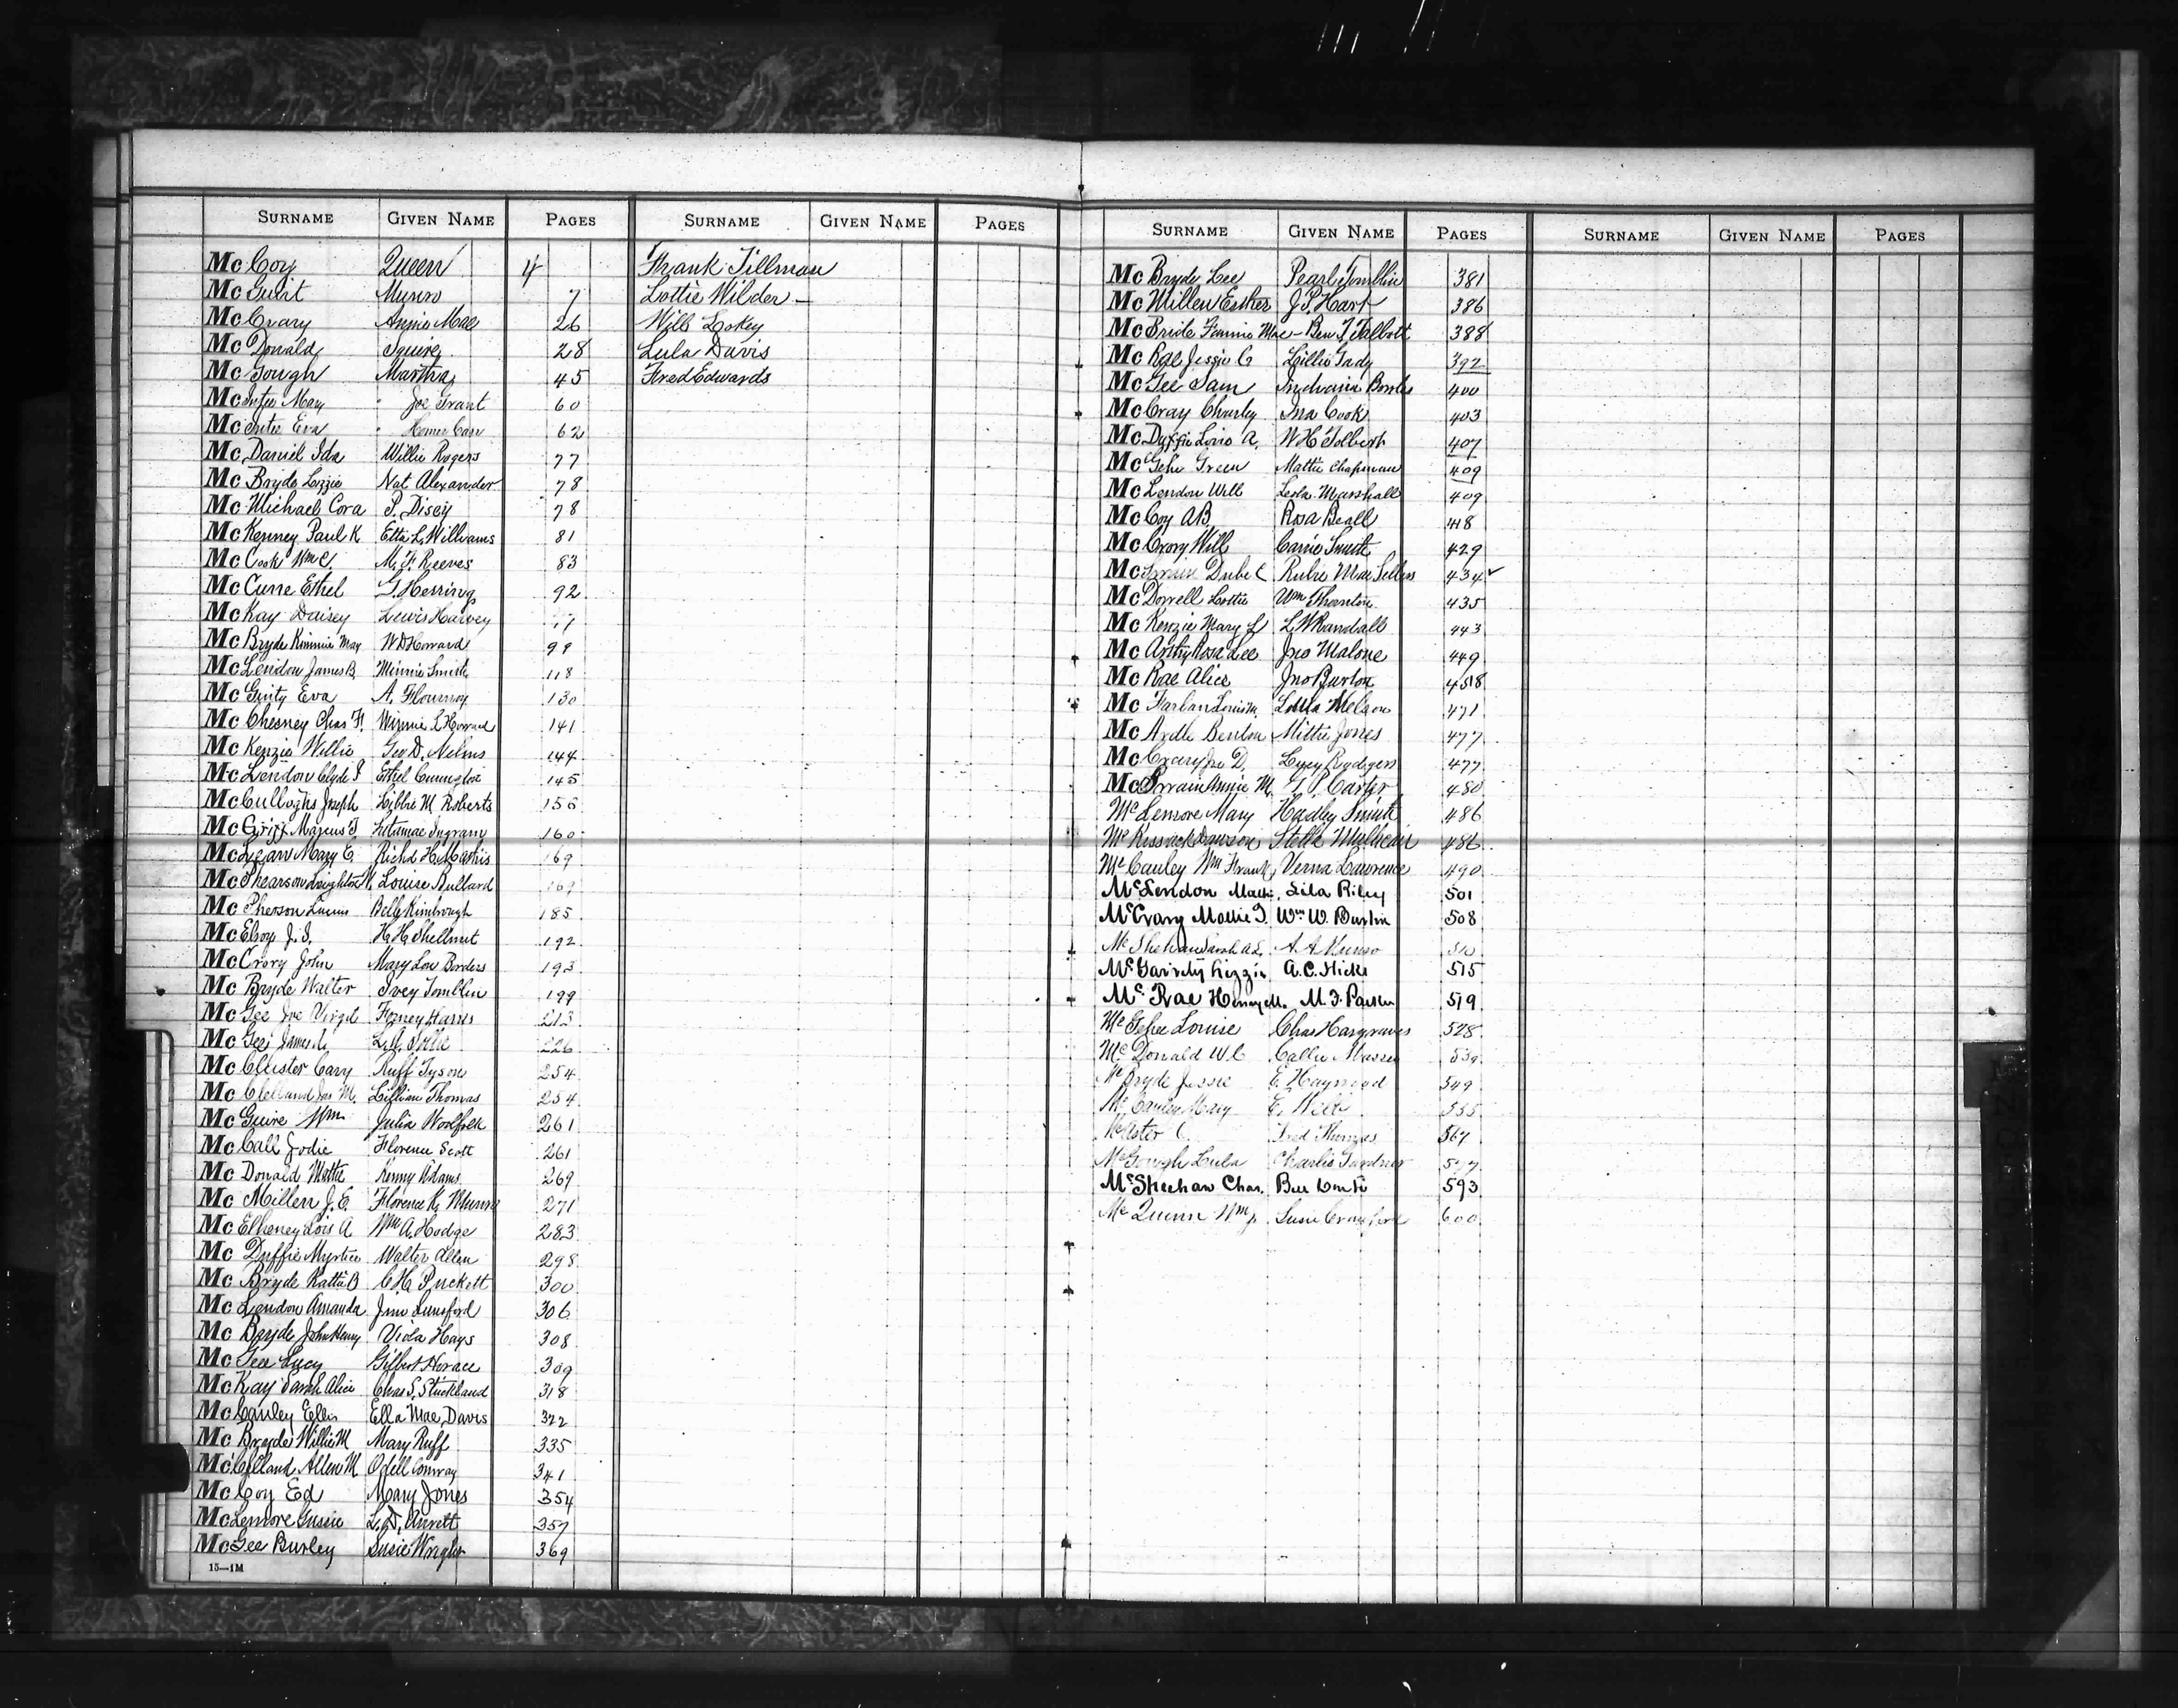 SURNAME GIVEN NAME PAGES SURNAME GIVEN NAME PAGES
McCoy Queen 4 Frank Tillman
Mc Munro 7 Lottie Wilder
McCrary Annie Mae 26 Will Lokey
McDonald Squire 28 Lula Davis
McGough Martha 45 Fred Edwards
Mc May Joe Grant 60
Mc Eva Homer Carr 62
McDaniel Ida Willie Rogers 77
McBryde Lizzie Nat Alexander 78
McMichael Cora P. Discy 78
McKenney Paul K Etta L. Williams 81
McCook Wm C. M. F. Reeves 83
McCune Ethel G. Herring 92
McKay Daisey Lewis Harvey
McBryde Kimmie May W D Howard 99
McLendon James B. Minnie Smith 118
McGinty Eva A. Flournoy 130
McChesney Chas F. Winnie L Howard 141
McKenzie Willie Geo D. Nelms 144
McLendon Clyde F Ethel 145
McCulloghs Joseph Libbie M. Roberts 156
McGriff Marcus J. Ingram 160
Mc Mary E. Richd H. Mathis 169
McPhearson Leighton W. Louise Bullard 169
McPherson Belle Kimbrough 185
McElroy J. S. H. H. Shellnut 192
McCrory John Mary Lou Borders 193
McBryde Walter Ivey Tomblin 199
McGee Joe Virgil Harris 213
McGee James 226
McCluster Cary Ruff Tyson 254
McClelland Jas M. Lillian Thomas 254
McGuire Wm Julia Woolfolk 261
McCall Jodie Florence Scott 261
McDonald Mattie Kenny Adams 269
McMillen J. E. Florence K. Munro 271
McElheney Lois A Wm A. Hodge 283
McDuffie Myrtice Walter Allen 298
McBryde Katta B C. H. Puckett 300
McLendon Amanda Jim Lunsford 306
McBryde John Henry Viola Hays 308
McGee Lucy Gilbert Horace 309
McKay Sarah Alice Chas S. Stuckland 318
McCauley Ellis Ella Mae Davis 322
McBryde Willie M Mary Ruff 335
McClelland Allen M Odell Conway 341
McCoy Ed Mary Jones 354
McLemore Gussie L. D. Averett 357
McGee Burley Susie Wright 369
15—1M
SURNAME GIVEN NAME PAGES SURNAME GIVEN NAME PAGES
McBryde Lee Pearl Tomblin 381
McMillen Esther J. P. Hart 386
McBride Fannie Mae - Ben T. Talbott 388
McRae Jessie G Lillie Gady 392
McGee Sam Indiania Bowles 400
McCray Charley Ina Cook 403
McDuffie Lois A. W H Tolbert 407
McGehe Green Mattie Chapman 409
McLendon Will Leola Marshall 409
McCoy A B Rosa Beall 418
McCrory Will Carrie Smith 429
Mc Dube C Rubie Mae Sellers 434
McDowell Lottie Wm Thornton 435
McKenzie Mary L L. W Randall 443
McArthy Rosa Lee Jno Malone 449
McRae Alice Jno Burton 458
McFarlan Louis M. Lula Nelson 471
McArdle Benton Mittie Jones 477
McCrary Jno D. Lucy Rodgers 477
McSwain Annie M. J. P. Carter 480
McLemore Mary Hadley Smith 486
McKissack Dawson Stella 486
McCauley Wm Frank Verna Lawrence 490
McLendon Math. Lila Riley 501
McCrary Mollie J. Wm W. Burlin 508
McShehan Sarah A. L. A. A. Munro 510
McGarrity Lizzie A. C. Hicks 515
McRae Henry M. M. F. Parker 519
McGehee Louise Chas Hargraves 528
McDonald W. C Callie Massey 539
McBryde Jessie E. Haywood 549
McCauley Mary E. Will
Fred Thomas 567
McGough Lula Charlie Gardner 577
McSheehan Chas. Bell 593
McQuinn Wm J. Susie Crawford 600